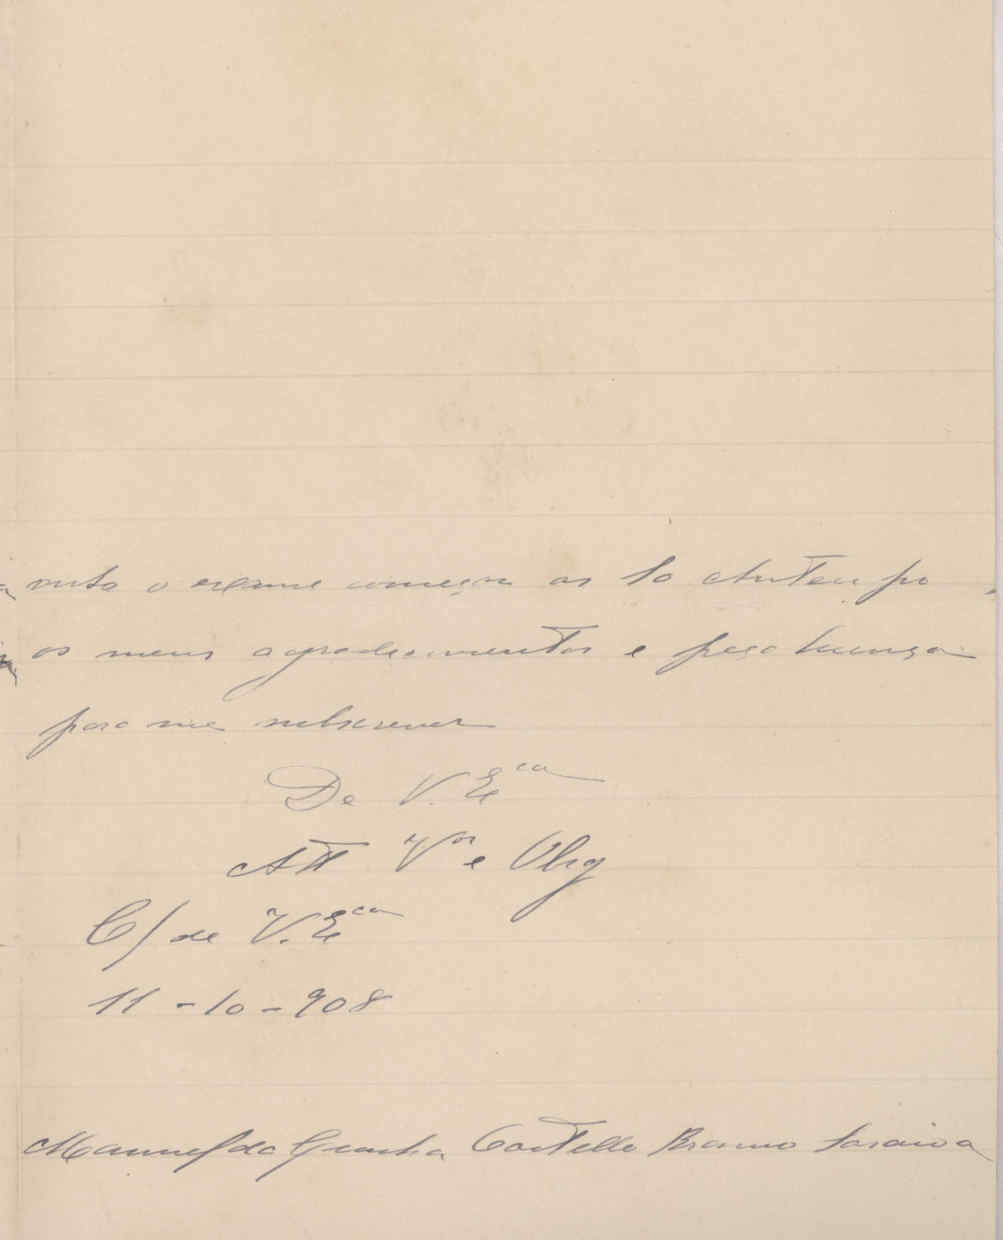 visto o exame começar as 10 Antecipo
os meus agradecimentos e peço licença
para me subscrever
De V. Exca
Att Vor e Obrg
C/ de V. Exca
11-10-908
Manuel da Cunha Castello Branco Saraiva